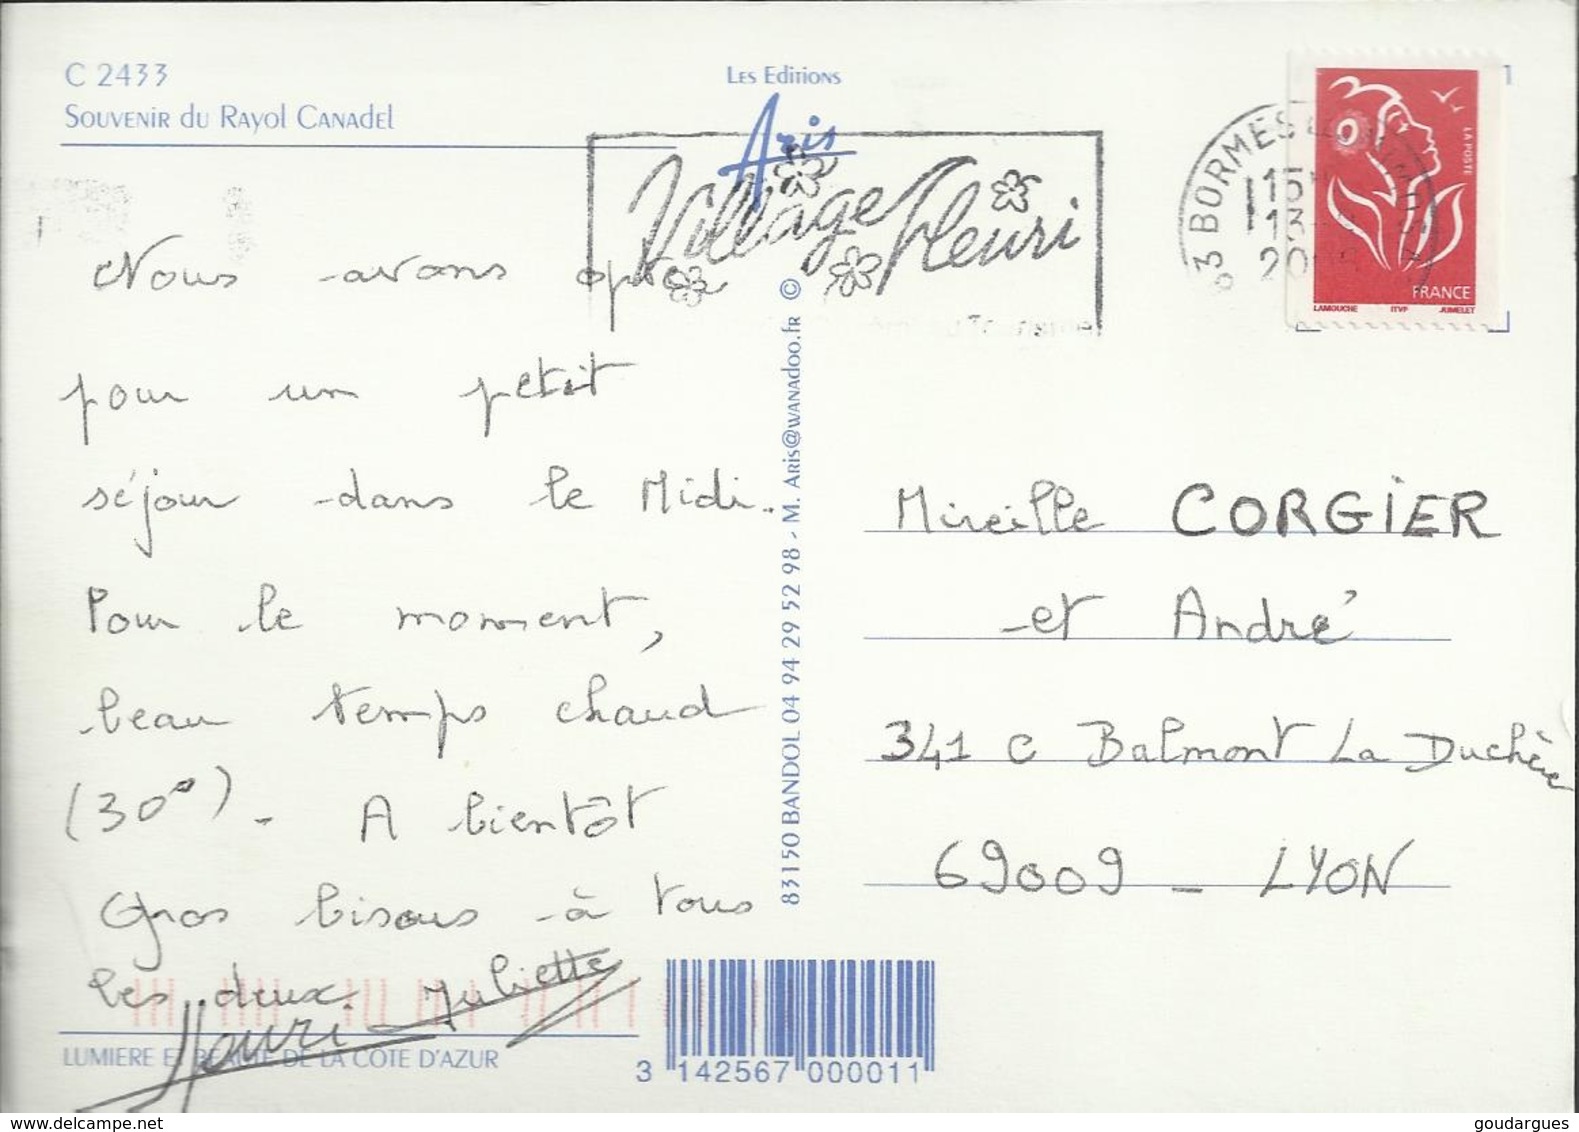 C 2433
Souvenir du Rayol Canadel
Les Editions
Aris
Village Fleuri
83 BORMES
15H
13-
LA POSTE
FRANCE
LAMOUCHE ITVF JUMELET
Nous avons opté
pour un petit
séjour dans le Midi.
Pour le moment,
beau temps chaud
(30°). A bientôt
Gros bisous à tous
les deux. Juliette
Henri
LUMIERE ET BEAUTE DE LA COTE D'AZUR
83150 BANDOL 04 94 29 52 98 - M. Aris@wanadoo.fr ©
Mireille CORGIER
et André
341 C Balmont La Duchère
69009 - LYON
3 142567 000011
goudargues